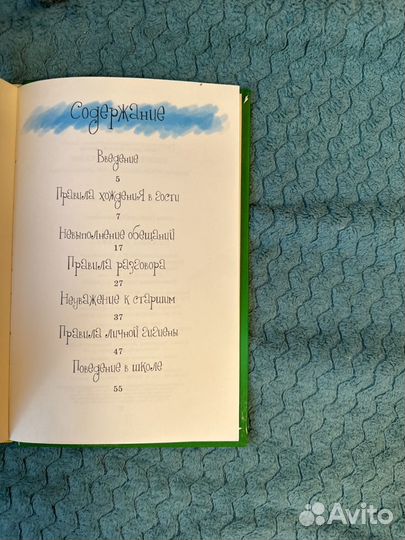 Содержание
Введение
5
Правила хождения в гости
7
Невыполнение обещаний
17
Правила разговора
27
Неуважение к старшим
37
Правила личной гигиены
47
Поведение в школе
55
Avito